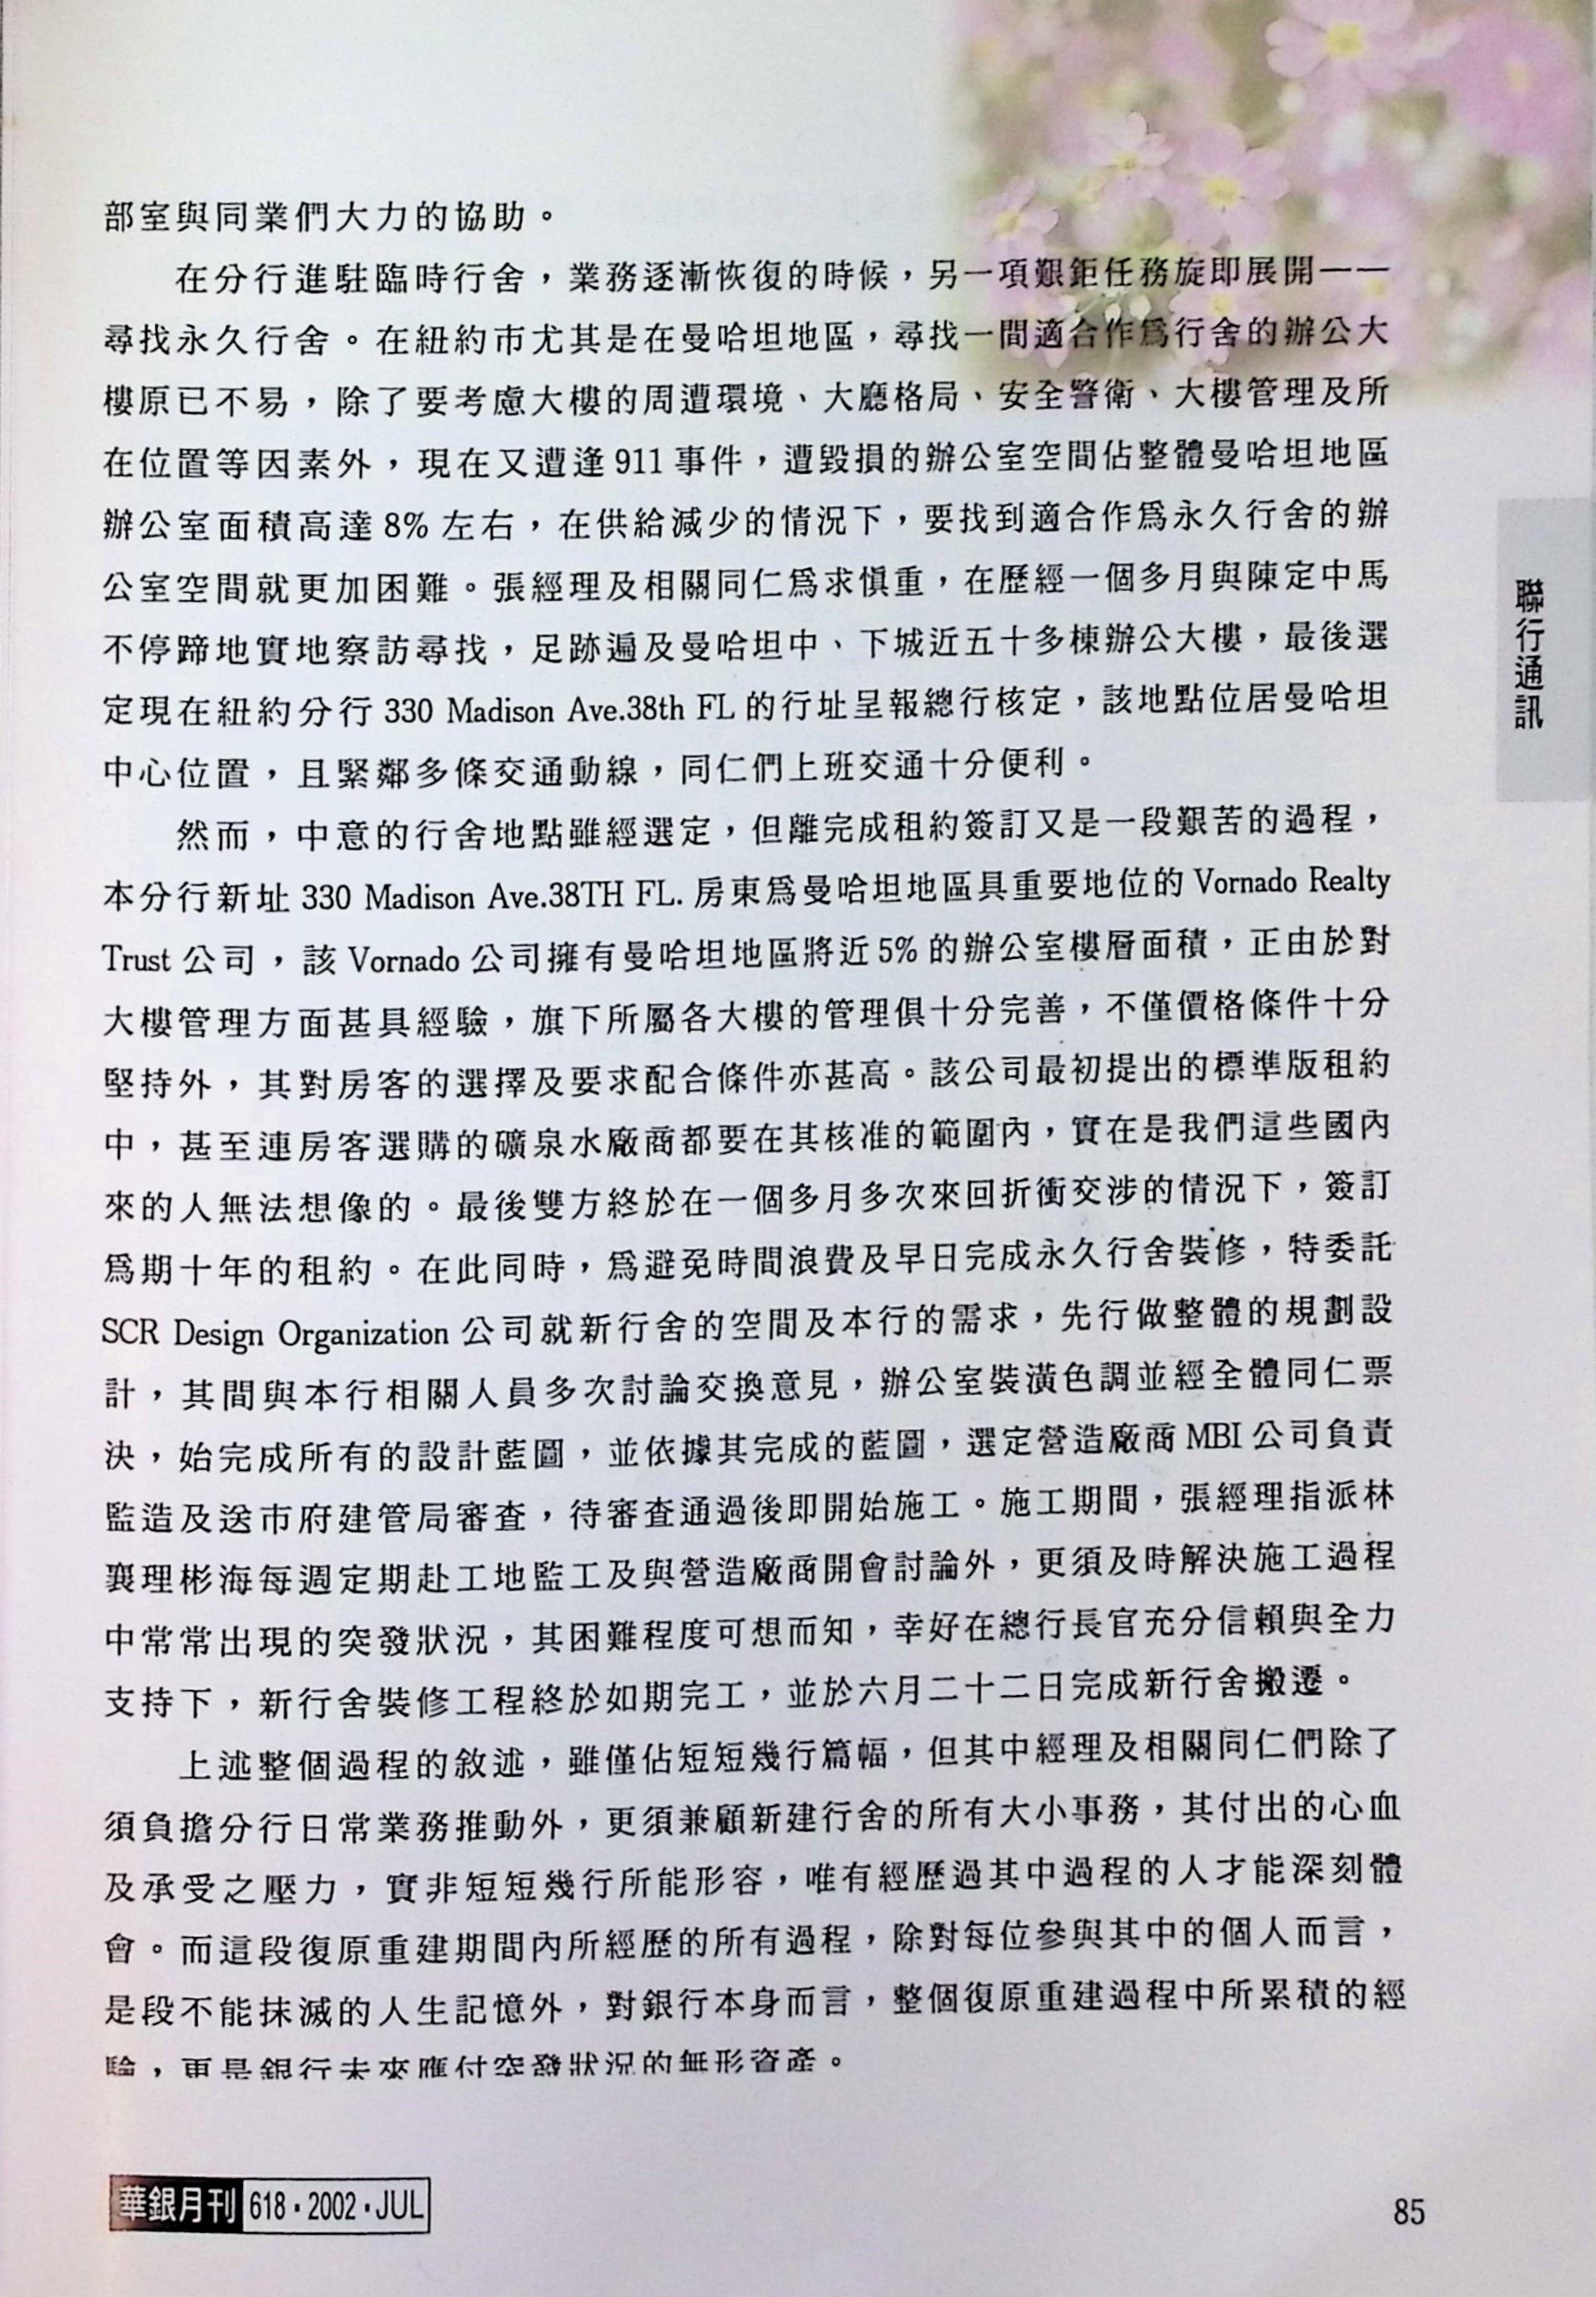 部室與同業們大力的協助。
在分行進駐臨時行舍，業務逐漸恢復的時候，另一項艱鉅任務旋即展開——
尋找永久行舍。在紐約市尤其是在曼哈坦地區，尋找一間適合作爲行舍的辦公大
樓原已不易，除了要考慮大樓的周遭環境、大廳格局、安全警衛、大樓管理及所
在位置等因素外，現在又遭逢911事件，遭毀損的辦公室空間佔整體曼哈坦地區
辦公室面積高達8%左右，在供給減少的情況下，要找到適合作爲永久行舍的辦
公室空間就更加困難。張經理及相關同仁爲求慎重，在歷經一個多月與陳定中馬
不停蹄地實地察訪尋找，足跡遍及曼哈坦中、下城近五十多棟辦公大樓，最後選
定現在紐約分行330 Madison Ave.38th FL的行址呈報總行核定，該地點位居曼哈坦
中心位置，且緊鄰多條交通動線，同仁們上班交通十分便利。
然而，中意的行舍地點雖經選定，但離完成租約簽訂又是一段艱苦的過程，
本分行新址330 Madison Ave.38TH FL.房東爲曼哈坦地區具重要地位的Vornado Realty
Trust公司，該Vornado公司擁有曼哈坦地區將近5%的辦公室樓層面積，正由於對
大樓管理方面甚具經驗，旗下所屬各大樓的管理俱十分完善，不僅價格條件十分
堅持外，其對房客的選擇及要求配合條件亦甚高。該公司最初提出的標準版租約
中，甚至連房客選購的礦泉水廠商都要在其核准的範圍內，實在是我們這些國內
來的人無法想像的。最後雙方終於在一個多月多次來回折衝交涉的情況下，簽訂
爲期十年的租約。在此同時，爲避免時間浪費及早日完成永久行舍裝修，特委託
SCR Design Organization公司就新行舍的空間及本行的需求，先行做整體的規劃設
計，其間與本行相關人員多次討論交換意見，辦公室裝潢色調並經全體同仁票
決，始完成所有的設計藍圖，並依據其完成的藍圖，選定營造廠商MBI公司負責
監造及送市府建管局審查，待審查通過後即開始施工。施工期間，張經理指派林
襄理彬海每週定期赴工地監工及與營造廠商開會討論外，更須及時解決施工過程
中常常出現的突發狀況，其困難程度可想而知，幸好在總行長官充分信賴與全力
支持下，新行舍裝修工程終於如期完工，並於六月二十二日完成新行舍搬遷。
上述整個過程的敘述，雖僅佔短短幾行篇幅，但其中經理及相關同仁們除了
須負擔分行日常業務推動外，更須兼顧新建行舍的所有大小事務，其付出的心血
及承受之壓力，實非短短幾行所能形容，唯有經歷過其中過程的人才能深刻體
會。而這段復原重建期間內所經歷的所有過程，除對每位參與其中的個人而言，
是段不能抹滅的人生記憶外，對銀行本身而言，整個復原重建過程中所累積的經
驗，更是銀行未來應付突發狀況的無形資產。
聯行通訊
華銀月刊 618・2002・JUL
85